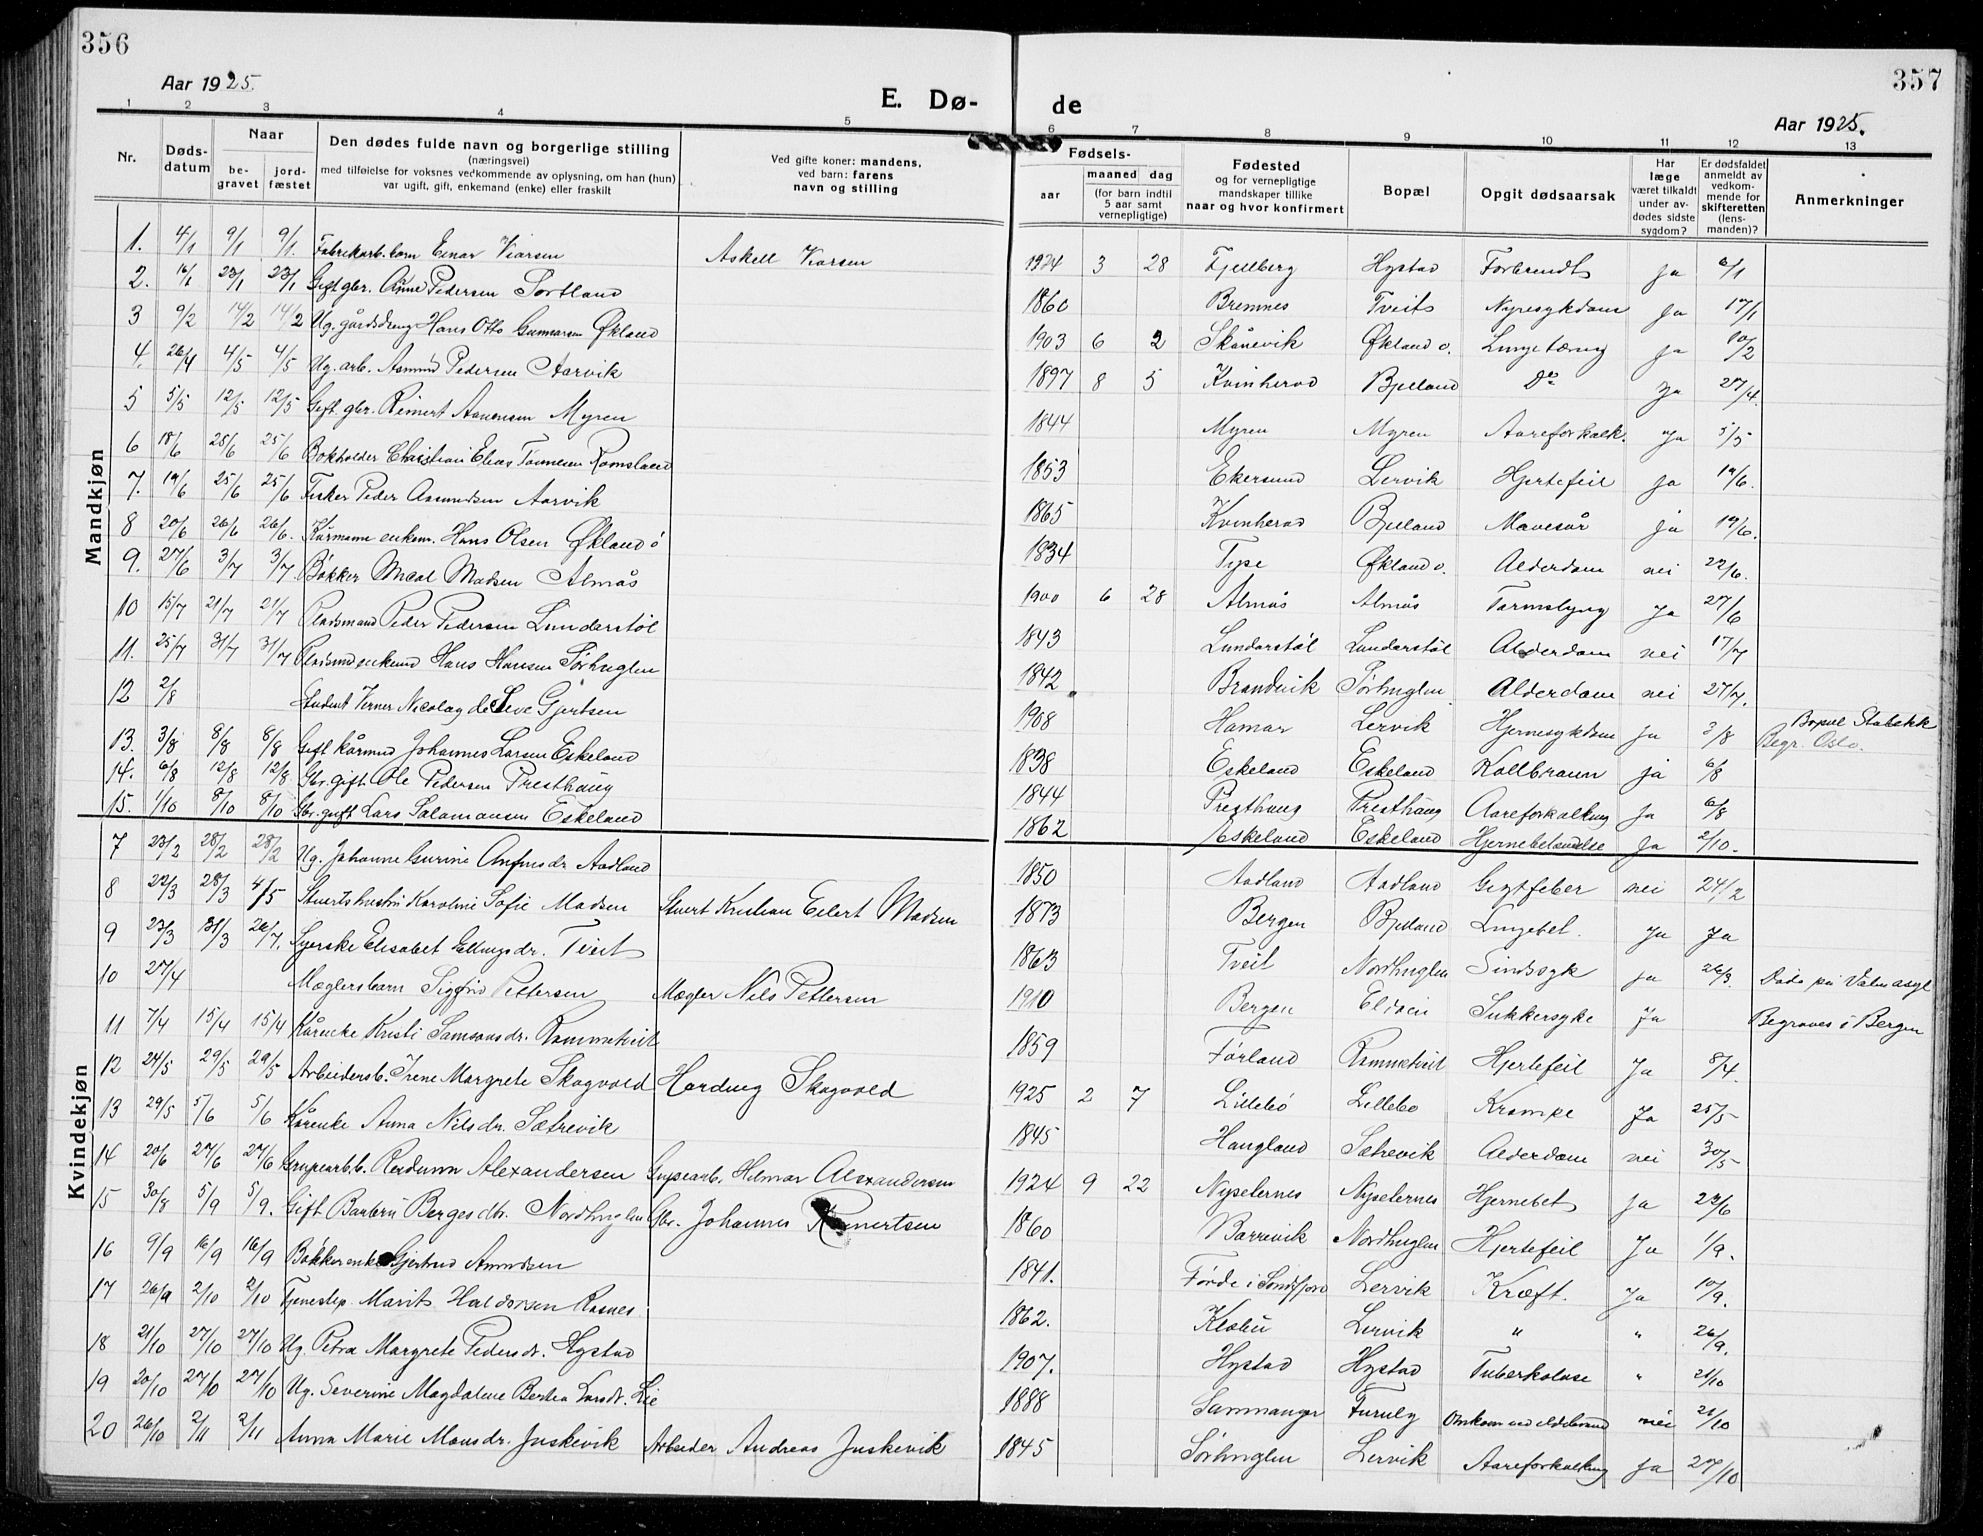 356
Aar 1925.
E. Dø-
1 2 3 4 5
Nr.
Døds-
datum
Naar
be-
gravet
jord-
fæstet
Den dødes fulde navn og borgerlige stilling
(næringsvei)
med tilføielse for voksnes vedkommende av oplysning, om han (hun)
var ugift, gift, enkemand (enke) eller fraskilt
Ved gifte koner: mandens,
ved barn: farens
navn og stilling
Mandkjøn
1. 4/1 9/1 9/1. Fabrikarb. barn Einar Viorsen Askell Viorsen
2. 16/1 23/1 23/1 Gift gbr. Arne Pedersen Sortland
3 9/2 14/2 14/2 Ug. gårdsdreng Hans Otto Gunnarsen Økland
4. 26/4 4/5 4/5 Ug. arb. Asmund Pedersen Aarvik
5 5/5 12/5 12/5 Gift gbr. Reinert Aanensen Myren
6 18/6 25/6 25/6 Bokholder Christian Elias Tønnesen Romsland
7. 19/6 25/6 25/6 Fisker Peder Asmundsen Aarvik
8 20/6 26/6 26/6. Kårmann enkem. Hans Olsen Økland ö
9. 27/6 3/7 3/7 Bøkker Mical Madsen Almås
10 15/7 21/7 21/7 Pladsmand Peder Pedersen Lundarstöl
11. 25/7 31/7 31/7 Pladsmd enkemd Hans Hansen Sørhuglen
12 2/8 Student Verner Nicolay de Seve Gjertsen
13. 3/8 8/8 8/8 Gift kårmd Johannes Larsen Eskeland
14. 6/8 12/8 12/8 Gbr. gift Ole Pedersen Presthaug
15. 1/10 8/10 8/10 Gbr. gift Lars Salamonsen Eskeland
Kvindekjøn
7 23/2 28/2 28/2 Ug. Johanne Gurine Anfinsdr. Aadland
8 22/3 28/3 4/5 Stuertshustru Karoline Sofie Madsen Stuert Kristian Eilert Madsen
9 23/3 31/3 26/7. Syerske Elisabet Ellingsdr. Tveit
10 27/4 Mæglersbarn Sigfrid Pettersen Mægler Nils Pettersen
11 7/4 15/4 15/4 Kårenke Kristi Samsonsdr. Rommetveit
12 24/5 29/5 29/5 Arbeidersb. Irene Margrete Skogvold Harding Skogvold
13 29/5 5/6 5/6 Kårenke Anna Nilsdr. Sætrevik
14 20/6 27/6 27/6 Grupearb.b. Reidunn Alexandersen Grupearb. Helmar Alexandersen
15 30/8 5/9 5/9. Gift Barbru Bergesdtr. Nordhuglen Gbr. Johannes Reinertsen
16 9/9 16/9 16/9 Bøkkerenke Gjertrud Amundsen
17 26/9 2/10 2/10 Tjenestep. Marit Haldorsen Rosnes
18 21/10 27/10 27/10 Ug. Petra Margrete Pedersdr. Hystad
19 20/10 27/10 27/10 Ug. Severine Magdalene Bertea Larsdr. Lie
20 26/10 2/11 2/11 Anna Marie Monsdr. Juskevik Arbeider Andreas Juskevik
357
de
Aar 1925.
6 7 8 9 10 11 12 13
Fødsels-
aar
maaned dag
(for barn indtil
5 aar samt
vernepligtige)
Fødested
og for vernepligtige
mandskaper tillike
naar og hvor konfirmert
Bopæl
Opgit dødsaarsak
Har
læge
været tilkaldt
under av-
dødes sidste
sygdom?
Er dødsfaldet
anmeldt av
vedkom-
mende for
skifteretten
(lens-
manden)?
Anmerkninger
1924 3 28 Fjellberg Hystad Forbrendt ja 6/1
1860 Bremnes Tveit Nyresykdom ja 17/1
1903 6 2 Skånevik Økland ö. Lungetæring ja 10/2
1897 8 5 Kvinherad Bjelland Do ja 27/4.
1844 Myren Myren Aareforkalk. ja 5/5
1853 Ekersund Lervik Hjertefeil ja 19/6.
1865 Kvinherad Bjelland Mavesår ja 19/6.
1834 Tyse Økland ö. Alderdom nei 22/6.
1900 6 28 Almås Almås Tarmslyng ja 27/6
1843 Lundarstöl Lundarstöl Alderdom nei 17/7
1842 Brandvik Sørhuglen Alderdom nei 27/7.
1908 Hamar Lervik Hjernesykdom ja 3/8 Bopæl Stabekk Begr. Oslo.
1838 Eskeland Eskeland Kollbrann ja 6/8
1844 Presthaug Presthaug Aareforkalkning ja 6/8
1862 Eskeland Eskeland Hjernebetændelse Ja 2/10.
1850 Aadland Aadland Gigtfeber nei 24/2
1873 Bergen Bjelland Lungebet. ja ja
1863 Tveit Nordhuglen Sindssyk ja 26/3. Døde på Valenasyl
1910 Bergen Eldøen Sukkersyke ja Begraves i Bergen
1859 Førland Rommetveit Hjertefeil Ja 8/4.
1925 2 7 Lillebö Lillebo Krampe Ja 25/5
1845 Haugland Sætrevik Alderdom nei 30/5
1924 9 22 Nyseternes Nyseternes Hjernebet. ja 23/6
1860 Barrevik Nordhuglen Hjertefeil Ja 1/9.
1841. Førde i Søndfjord Lervik Kræft. Ja 10/9.
1862. Klæbu Lervik " " 26/9.
1907. Hystad Hystad Tuberkolose " 21/10
1888 Sammanger Furuly Omkom ved ildebrand nei 21/10
1845 Sørhuglen Lervik Aareforkalkning ja 27/10